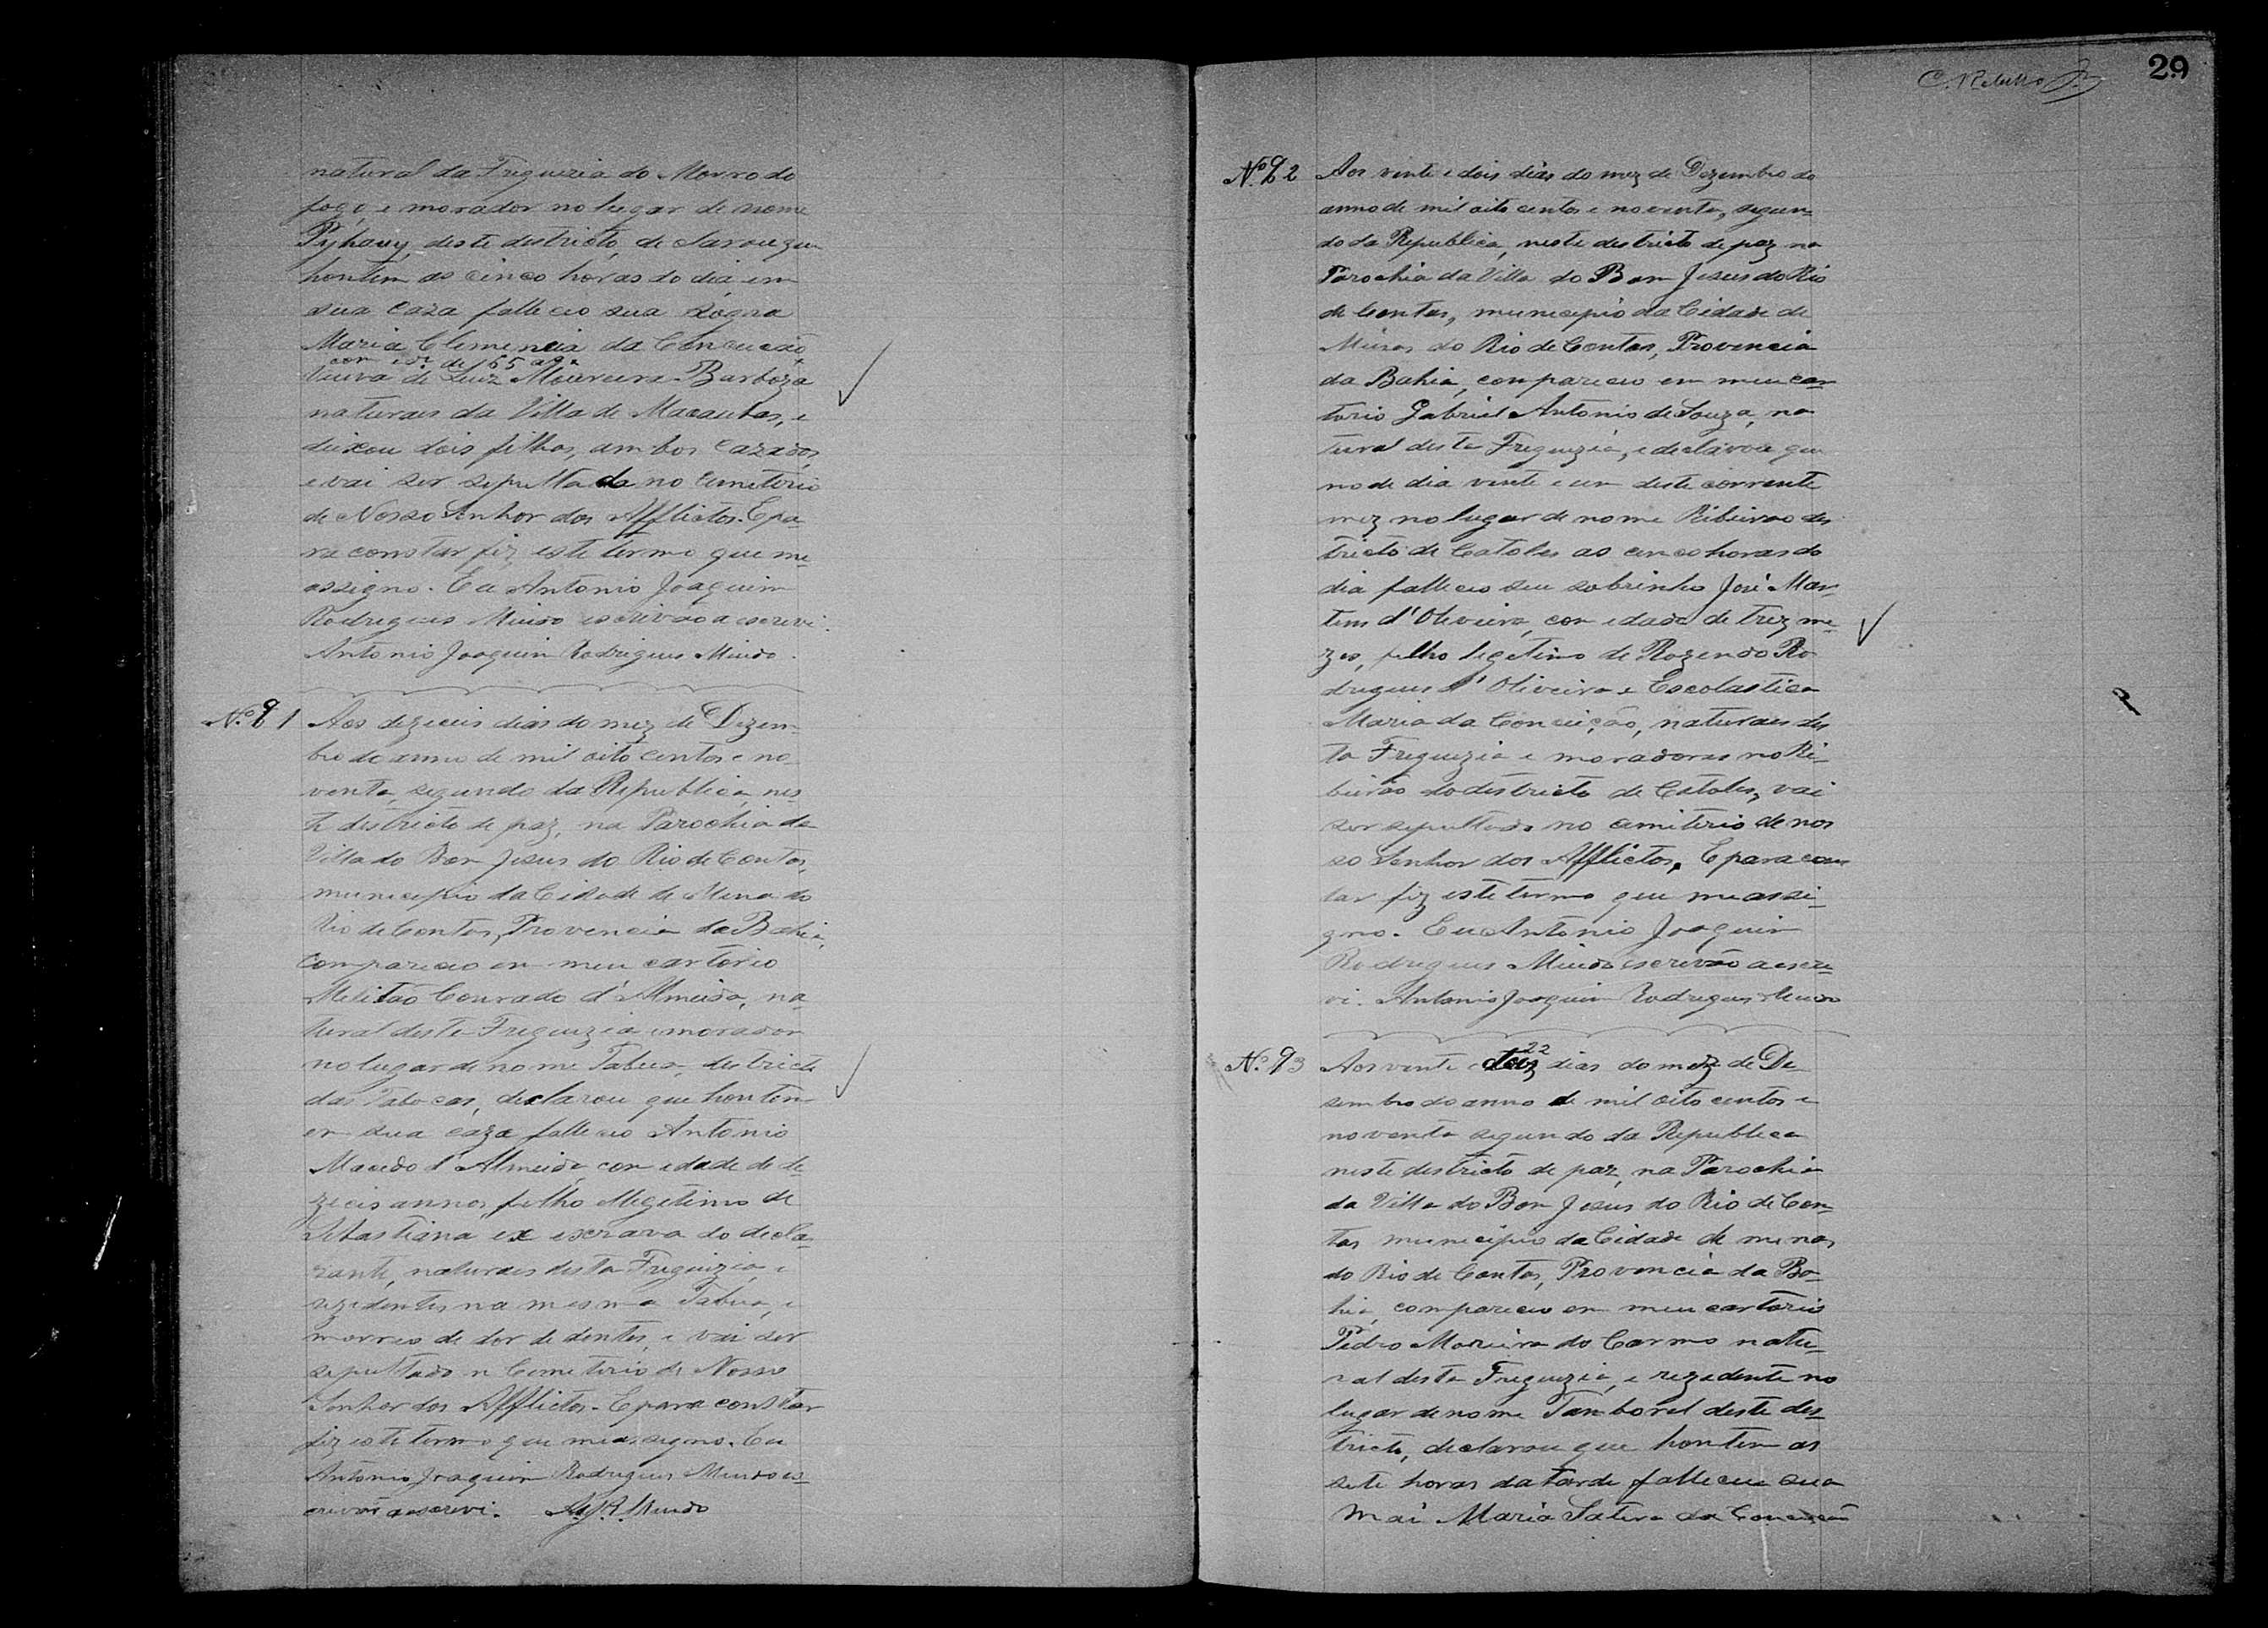 natural da Freguezia do Morro do
fogo e morador no lugar de nome
deste destricto, declarou que
hontem as cinco horas do dia em
sua caza falleceo sua sogra
Maria Clemencia da Conceicão
com de 65
Viuva de Luiz Moureira Barboza
naturaes da Villa de Macaubas, e
deixou dois filhos, ambos cazados,
e vai ser sepultada no cemeterio
de Nosso Senhor dos Afflictos. E pa-
ra constar fiz este termo que me
assigno. Eu Antonio Joaquim
Rodrigues Miudo escrivão a escrevi.
Antonio Joaquim Rodrigues Miudo.
N.º 91 Aos dezeceis dias do mez de Dezem-
bro do anno de mil oito centos e no-
venta, segundo da Republica, nes-
te destricto de paz, na Parochia da
Villa do Bom Jesus do Rio de Contas,
municipio da Cidade de Mina do
Rio de Contas, Provencia da Bahia,
compareceo em meu cartorio
Melitão Conrado d'Almeida, na-
tural desta Freguezia e morador
no lugar de nome Tabua, destricto
das Tabocas, declarou que hontem
em sua caza falleceo Antonio
Macedo d'Almeida com edade de de-
zeceis annos, filho illegetimo de
Sebastiana ex escrava do decla-
rante, naturaes desta Freguezia, e
rezidentes na mesma Tabua, e
morreo de dor de dentes, e vai ser
sepultado n Cemeterio de Nosso
Senhor dos Afflictos. E para constar
fiz este termo que me assigno. Eu
Antonio Joaquim Rodrigues Miudo es-
crivão a escrevi. A.J.R. Miudo
29
N.º 92 Aos vente e dois dias do mez de Dezembro do
anno de mil oito centos e noventa, segun-
do da Republica, neste destricto de paz na
Parochia da Villa do Bom Jesus do Rio
de Contas, municipio da Cidade de
Minas do Rio de Contas, Provencia
da Bahia, compareceo em meu car-
torio Gabriel Antonio de Souza, na-
tural desta Freguezia, e declarou que
no de dia vente e um deste corrente
mez no lugar de nome Ribeirao des-
tricto de Catoles as cinco horas do
dia falleceo seu sobrinho José Mar-
tins d'Oliveira, com edade de trez me-
zes, filho legetimo de Rozendo Ro-
drigues d'Oliveira e Escolastica
Maria da Conceição, naturaes des-
ta Freguezia e moradores no Ri-
beirão do destricto de Catoles, vai
ser sepultado no cemiterio de nos
so Senhor dos Afflictos. E para cons
tar fiz este termo que me assi-
gno. Eu Antonio Joaquim
Rodrigues Miudo escrivão a escre-
vi. Antonio Joaquim Rodrigues Miudo
N.º 93 Aos vente e doiz 22 dias do mez de De
sembro do anno de mil oito centos e
noventa segundo da Republica
neste destricto de paz, na Parochia
da Villa do Bom Jesus do Rio de Con-
tas municipio da Cidade de minas
do Rio de Contas, Provencia da Ba-
hia, compareceo em meu cartorio
Pedro Moreira do Carmo natu-
ral desta Freguezia, e rezedente no
lugar de nome Tamboril deste des-
tricto, declarou que hontem as
sete horas da tarde falleceu sua
Mai Maria Satira da Conceicão